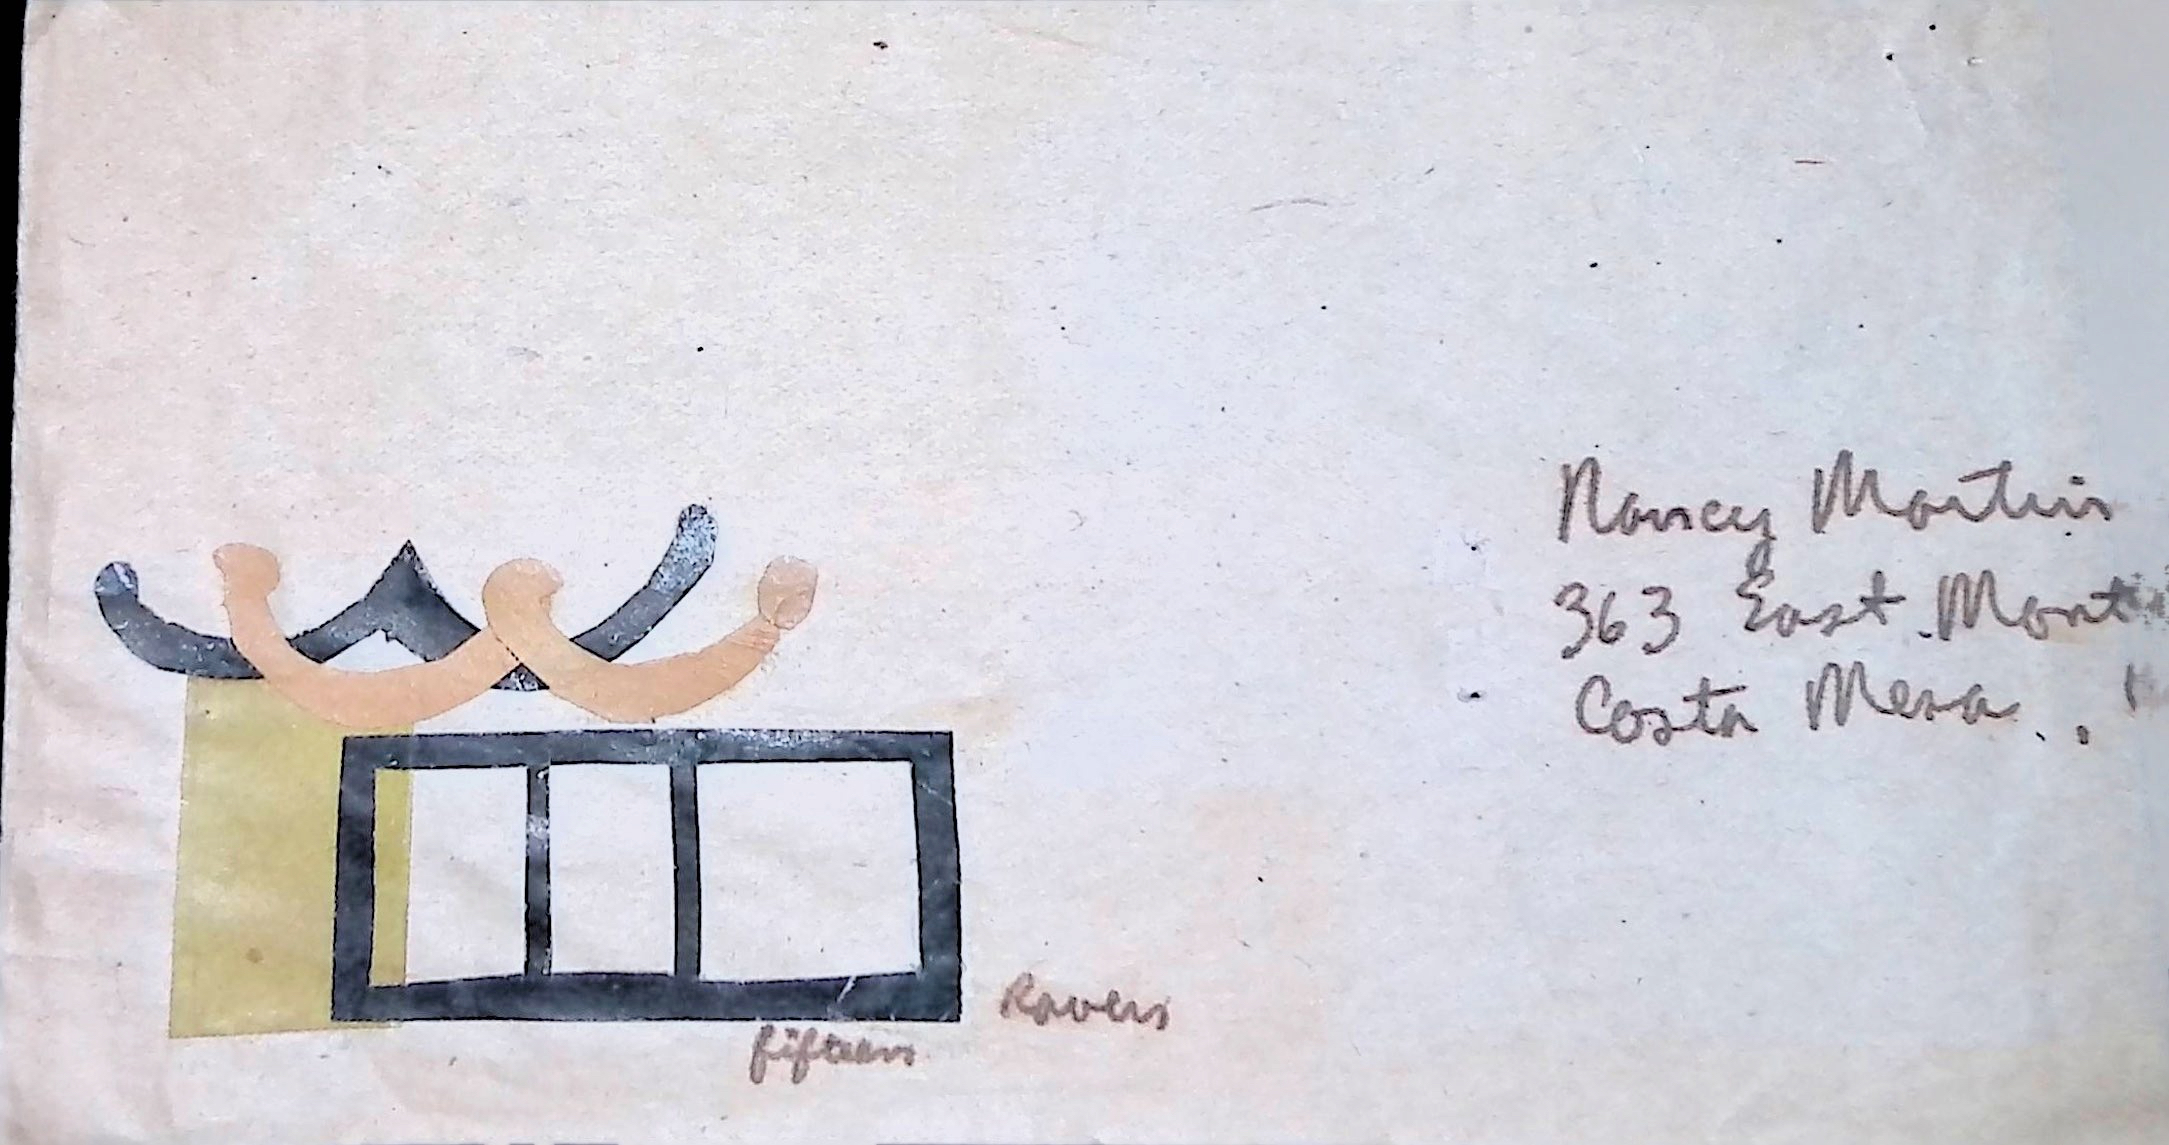 Nancy Martin
363 East Mont
Costa Mesa
Ravens
fifteen